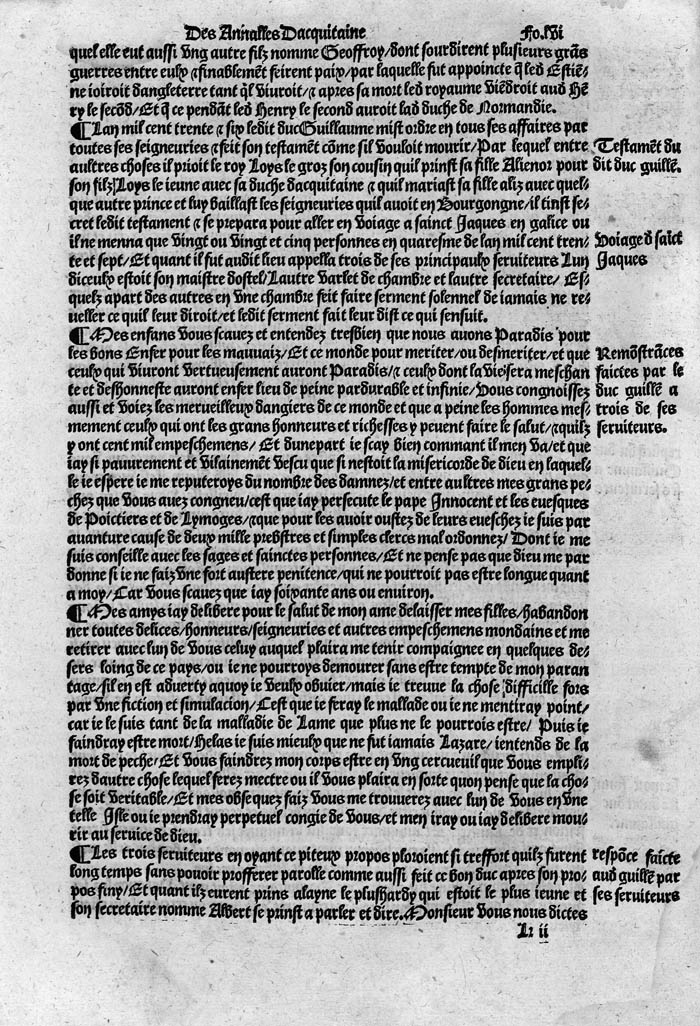 Des Annalles Dacquitaine Fo.lvi
quel elle eut aussi vng autre filz nomme Geoffroy/dont sourdirent plusieurs grãs
guerres entre eulx ⁊ finablemẽt feirent paix/par laquelle fut appoincte q̃ led Estiẽ-
ne ioiroit dangleterre tant q̃l viuroit/⁊ apres sa mort led royaume viẽdroit aud Hẽ
ry le secõd/Et q̃ ce pendãt led Henry le second auroit lad duche de Normandie.
¶Lan mil cent trente ⁊ six ledit duc Guillaume mist ordre en tous ses affaires par
toutes ses seigneuries ⁊ feit son testamẽt cõme sil vouloit mourir/Par lequel entre
Testamẽt du
aultres choses il prioit le roy Loys le groz son cousin quil prinst sa fille Alienor pour
dit duc guillẽ.
son filz Loys le ieune auec sa duche dacquitaine ⁊ quil mariast sa fille aliz auec quel-
que autre prince et luy baillast les seigneuries quil auoit en Bourgongne/il tinst se-
cret ledit testament ⁊ se prepara pour aller en voiage a sainct Jaques en galice ou
il ne menna que vingt ou vingt et cinq personnes en quaresme de lan mil cent tren-
voiage d saĩct
te et sept/Et quant il fut audit lieu appella trois de ses principaulx seruiteurs Lun
Jaques
diceulx estoit son maistre dostel/Lautre varlet de chambre et lautre secretaire/Es-
quelz apart des autres en vne chambre feit faire serment solennel de iamais ne re-
ueller ce quil leur diroit/et ledit serment fait leur dist ce qui sensuit.
¶Mes enfans vous scauez et entendez tresbien que nous avons Paradis pour
les bons Enfer pour les mauuaiz/Et ce monde pour meriter/ou desmeriter/et que
Remõstrãces
ceulx qui viuront vertueusement auront Paradis/⁊ ceulx dont la vie sera meschan
faictes par le
te et deshonneste auront enfer lieu de peine pardurable et infinie/vous congnoissez
duc guillẽ a
aussi et voiez les merueilleux dangiers de ce monde et que a peine les hommes mes-
trois de ses
mement ceulx qui ont les grans honneurs et richesses y peuent faire le salut/⁊quilz
seruiteurs.
y ont cent mil empeschemens/Et dunepart ie scay bien commant il men va/et que
iay si pauurement et vilainemẽt vescu que si nestoit la misericorde de dieu en laquel-
le ie espere ie me reputeroys du nombre des damnez/et entre aultres mes grans pe-
chez que vous auez congneu/cest que iay persecute le pape Innocent et les euesques
de Poictiers et de Lymoges/⁊que pour les auoir oustez de leurs eueschez ie suis par
auanture cause de deux mille prebstres et simples clercs mal ordonnez/Dont ie me
suis conseille auec les sages et sainctes personnes/Et ne pense pas que dieu me par
donne si ie ne faiz vne fort austere penitence/qui ne pourroit pas estre longue quant
a moy/Car vous scauez que iay soixante ans ou enuiron.
¶Mes amys iay delibere pour le salut de mon ame delaisser mes filles/habandon
ner toutes delices/honneurs/seigneuries et autres empeschemens mondains et me
retirer auec lun de vous celuy auquel plaira me tenir compaignee en quelques de-
sers loing de ce pays/ou ie ne pourroys demourer sans estre tempte de mon paran
tage/sil en est aduerty aquoy ie veulx obuier/mais ie treuue la chose difficille fors
par vne fiction et simulacion/Cest que ie feray le mallade ou ie ne mentiray point/
car ie le suis tant de la malladie de Lame que plus ne le pourrois estre/ Puis ie
faindray estre mort/Helas ie suis mieulx que ne fut iamais Lazare/ientends de la
mort de peche/Et vous faindrez mon corps estre en vng cercueuil que vous empli-
rez dautre chose lequel ferez mectre ou il vous plaira en sorte quon pense que la cho-
se soit veritable/Et mes obsequez faiz vous me trouuerez auec lun de vous en vne
telle Isle ou ie prendray perpetuel congie de vous/et men iray ou iay delibere mou-
rir au seruice de dieu.
¶Les trois seruiteurs en oyant ce piteux propos ploroient si treffort quilz furent
respõce faicte
long temps sans pouoir profferer parolle comme aussi feit ce bon duc apres son pro-
aud guillẽ par
pos finy/Et quant ilz eurent prins alayne le plushardy qui estoit le plus ieune et
ses seruiteurs
son secretaire nomme Albert se prinst a parler et dire.Monsieur vous nous dictes
Lı ii